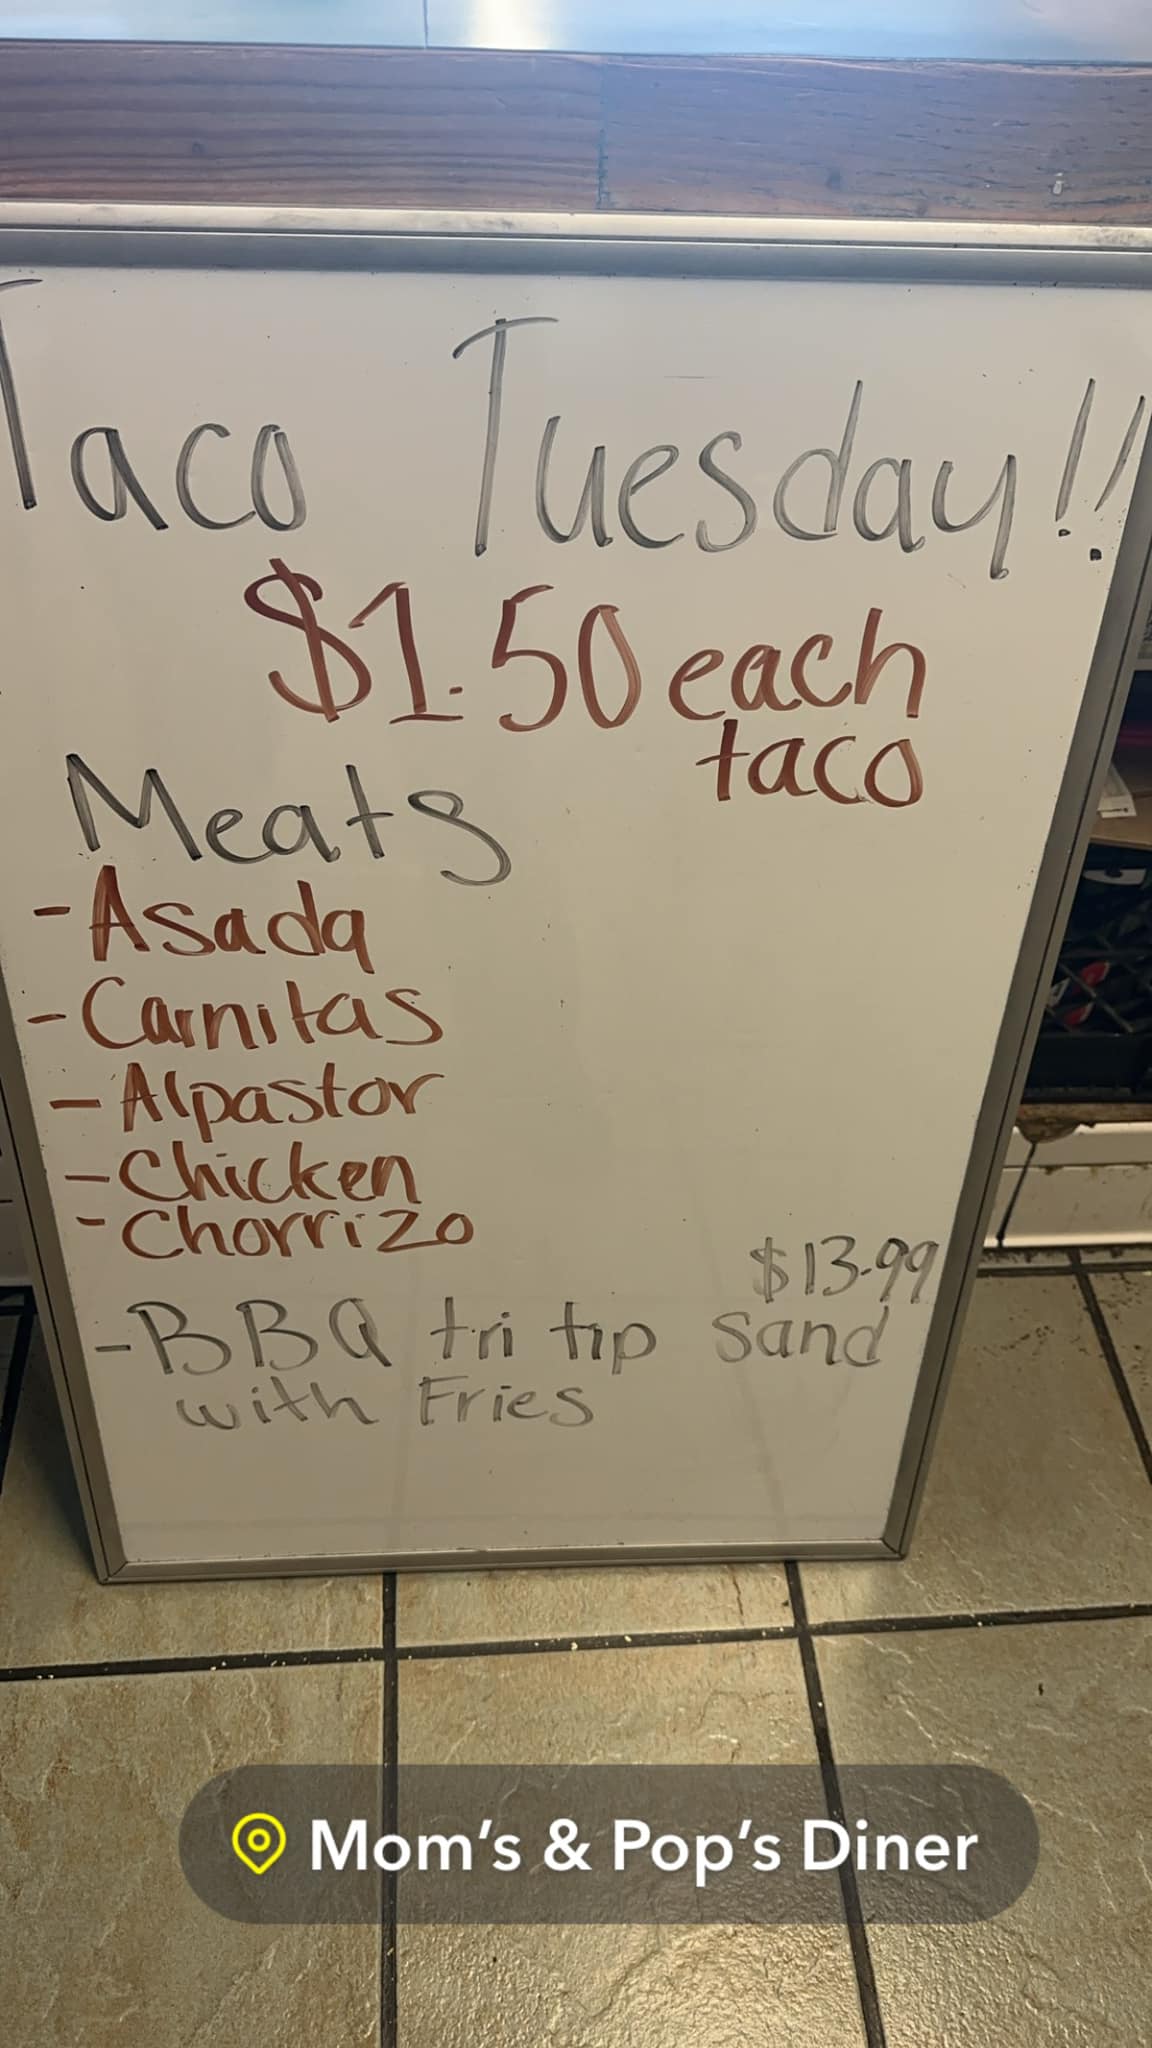 Taco Tuesday!!
$1.50 each
taco
Meats
- Asada
- Carnitas
- Alpastor
- Chicken
- Chorrizo
$13.99
- BBQ tri tip Sand
with Fries
Mom's & Pop's Diner